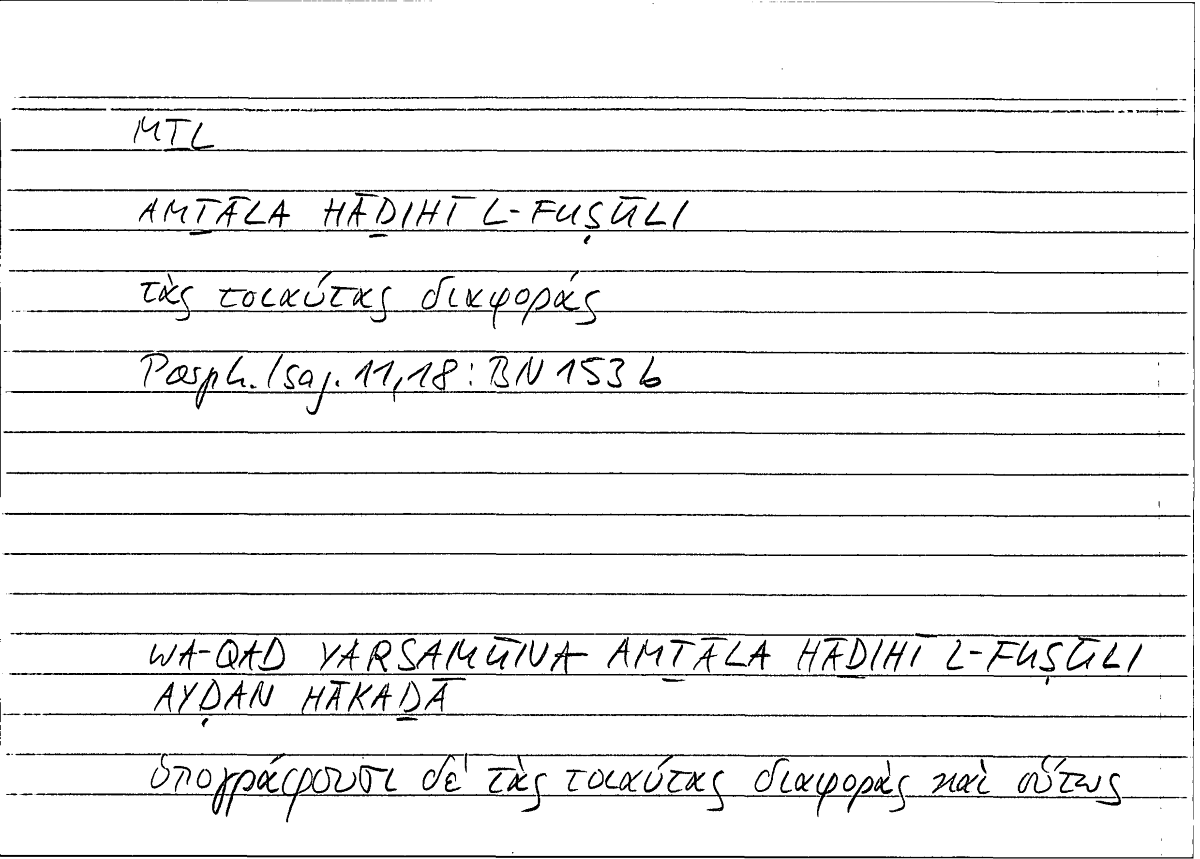 MṮL
AMṮĀLA HĀḎIHĪ L-FUṢŪLI
τὰς τοιαύτας διαφοράς
Porph. Isag. 11,18: BN 153 b
WA-QAD YARSAMŪNA AMṮĀLA HĀḎIHĪ L-FUṢŪLI
AYḌAN HĀKAḎĀ
ὑπογράφουσι δὲ τὰς τοιαύτας διαφορὰς καὶ οὕτως